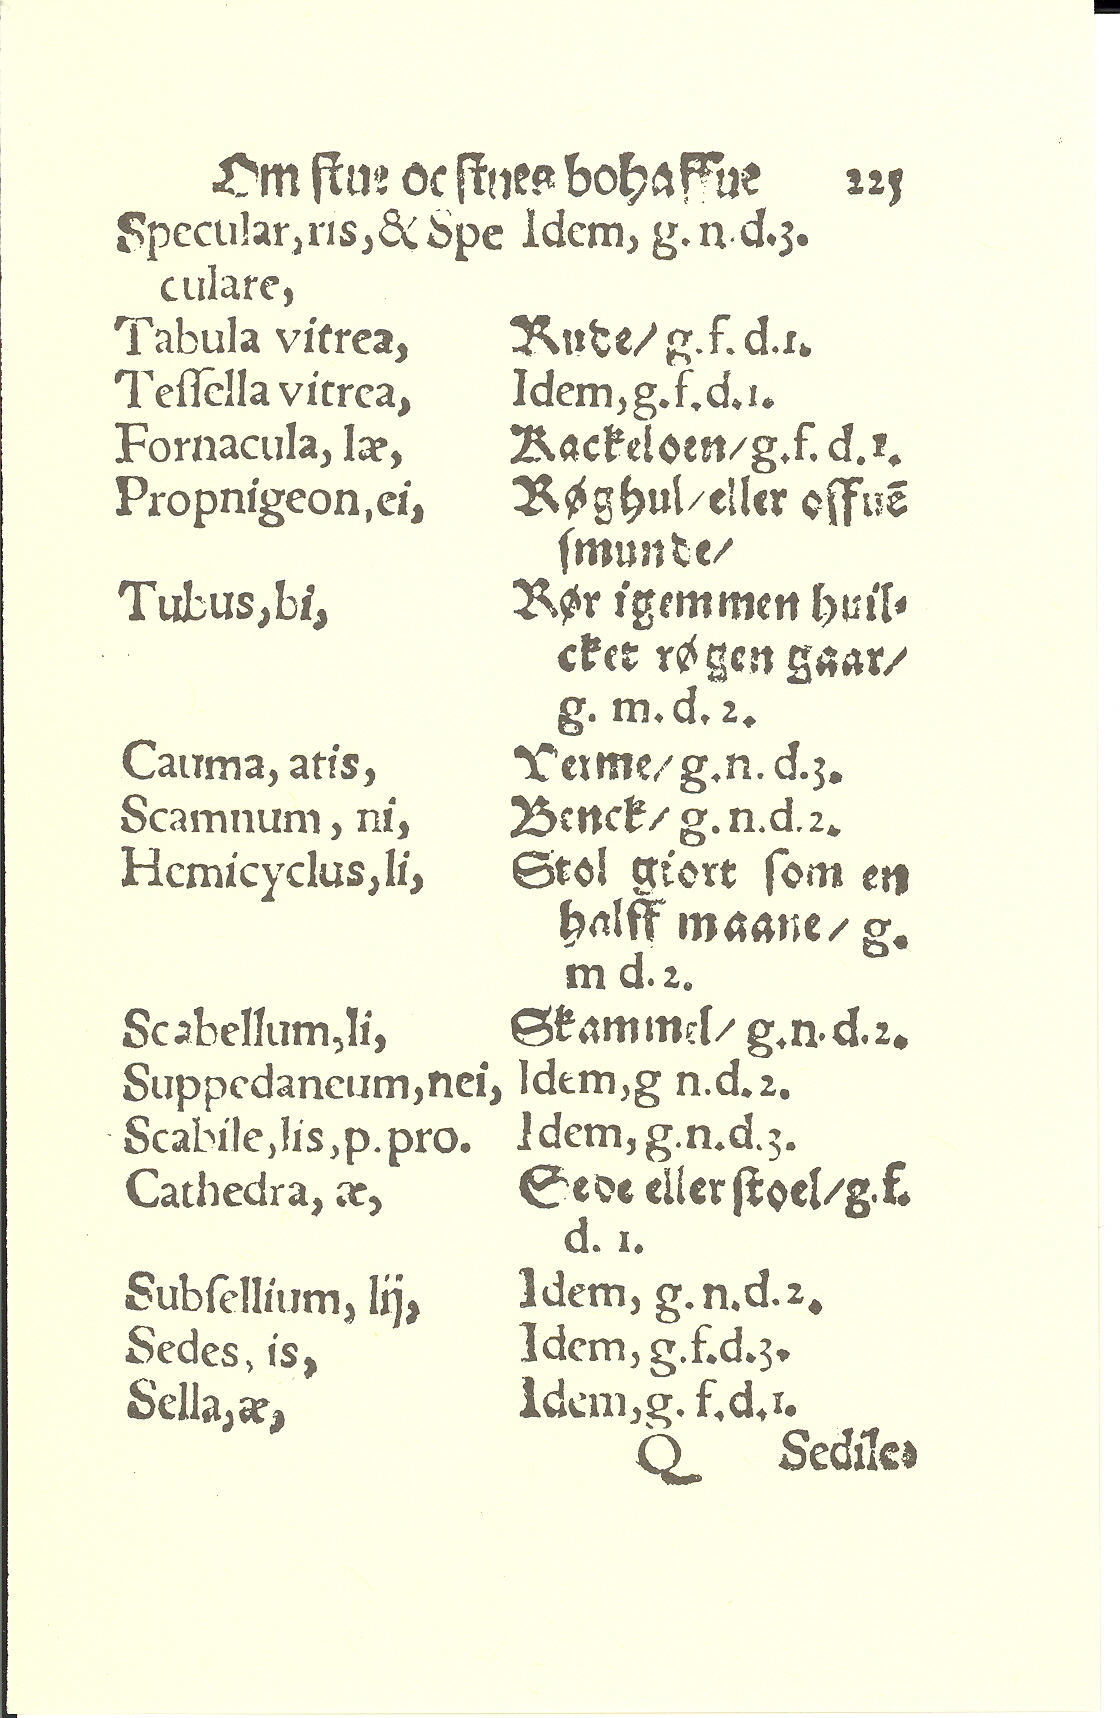 Om stue oc stues bohaffue 225
Specular, ris, & Spe Idem, g. n. d. 3.
culare,
Tabula vitrea, Rude/ g. f. d. 1.
Teſſella vitrea, Idem, g. f. d. 1.
Fornacula, læ, Kackeloen/ g. f. d. 1.
Propnigeon, ei, Røghul/ eller offuē
ſmunde/
Tubus, bi, Rør igemmen huil-
cket røgen gaar/
g. m. d. 2.
Cauma, atis, Verme/ g. n. d. 3.
Scamnum, ni, Benck/ g. n. d. 2.
Hemicyclus, li, Stol giort ſom en
halff maane/ g.
m d. 2.
Scabellum, li, Skammel/ g. n. d. 2.
Suppedaneum, nei, Idem, g n. d. 2.
Scabile, lis, p. pro. Idem, g. n. d. 3.
Cathedra, æ, Sede eller ſtoel/ g. f.
d. 1.
Subſellium, lij, Idem, g. n. d. 2.
Sedes, is, Idem, g. f. d. 3.
Sella, æ, Idem, g. f. d. 1.
Q Sedile,